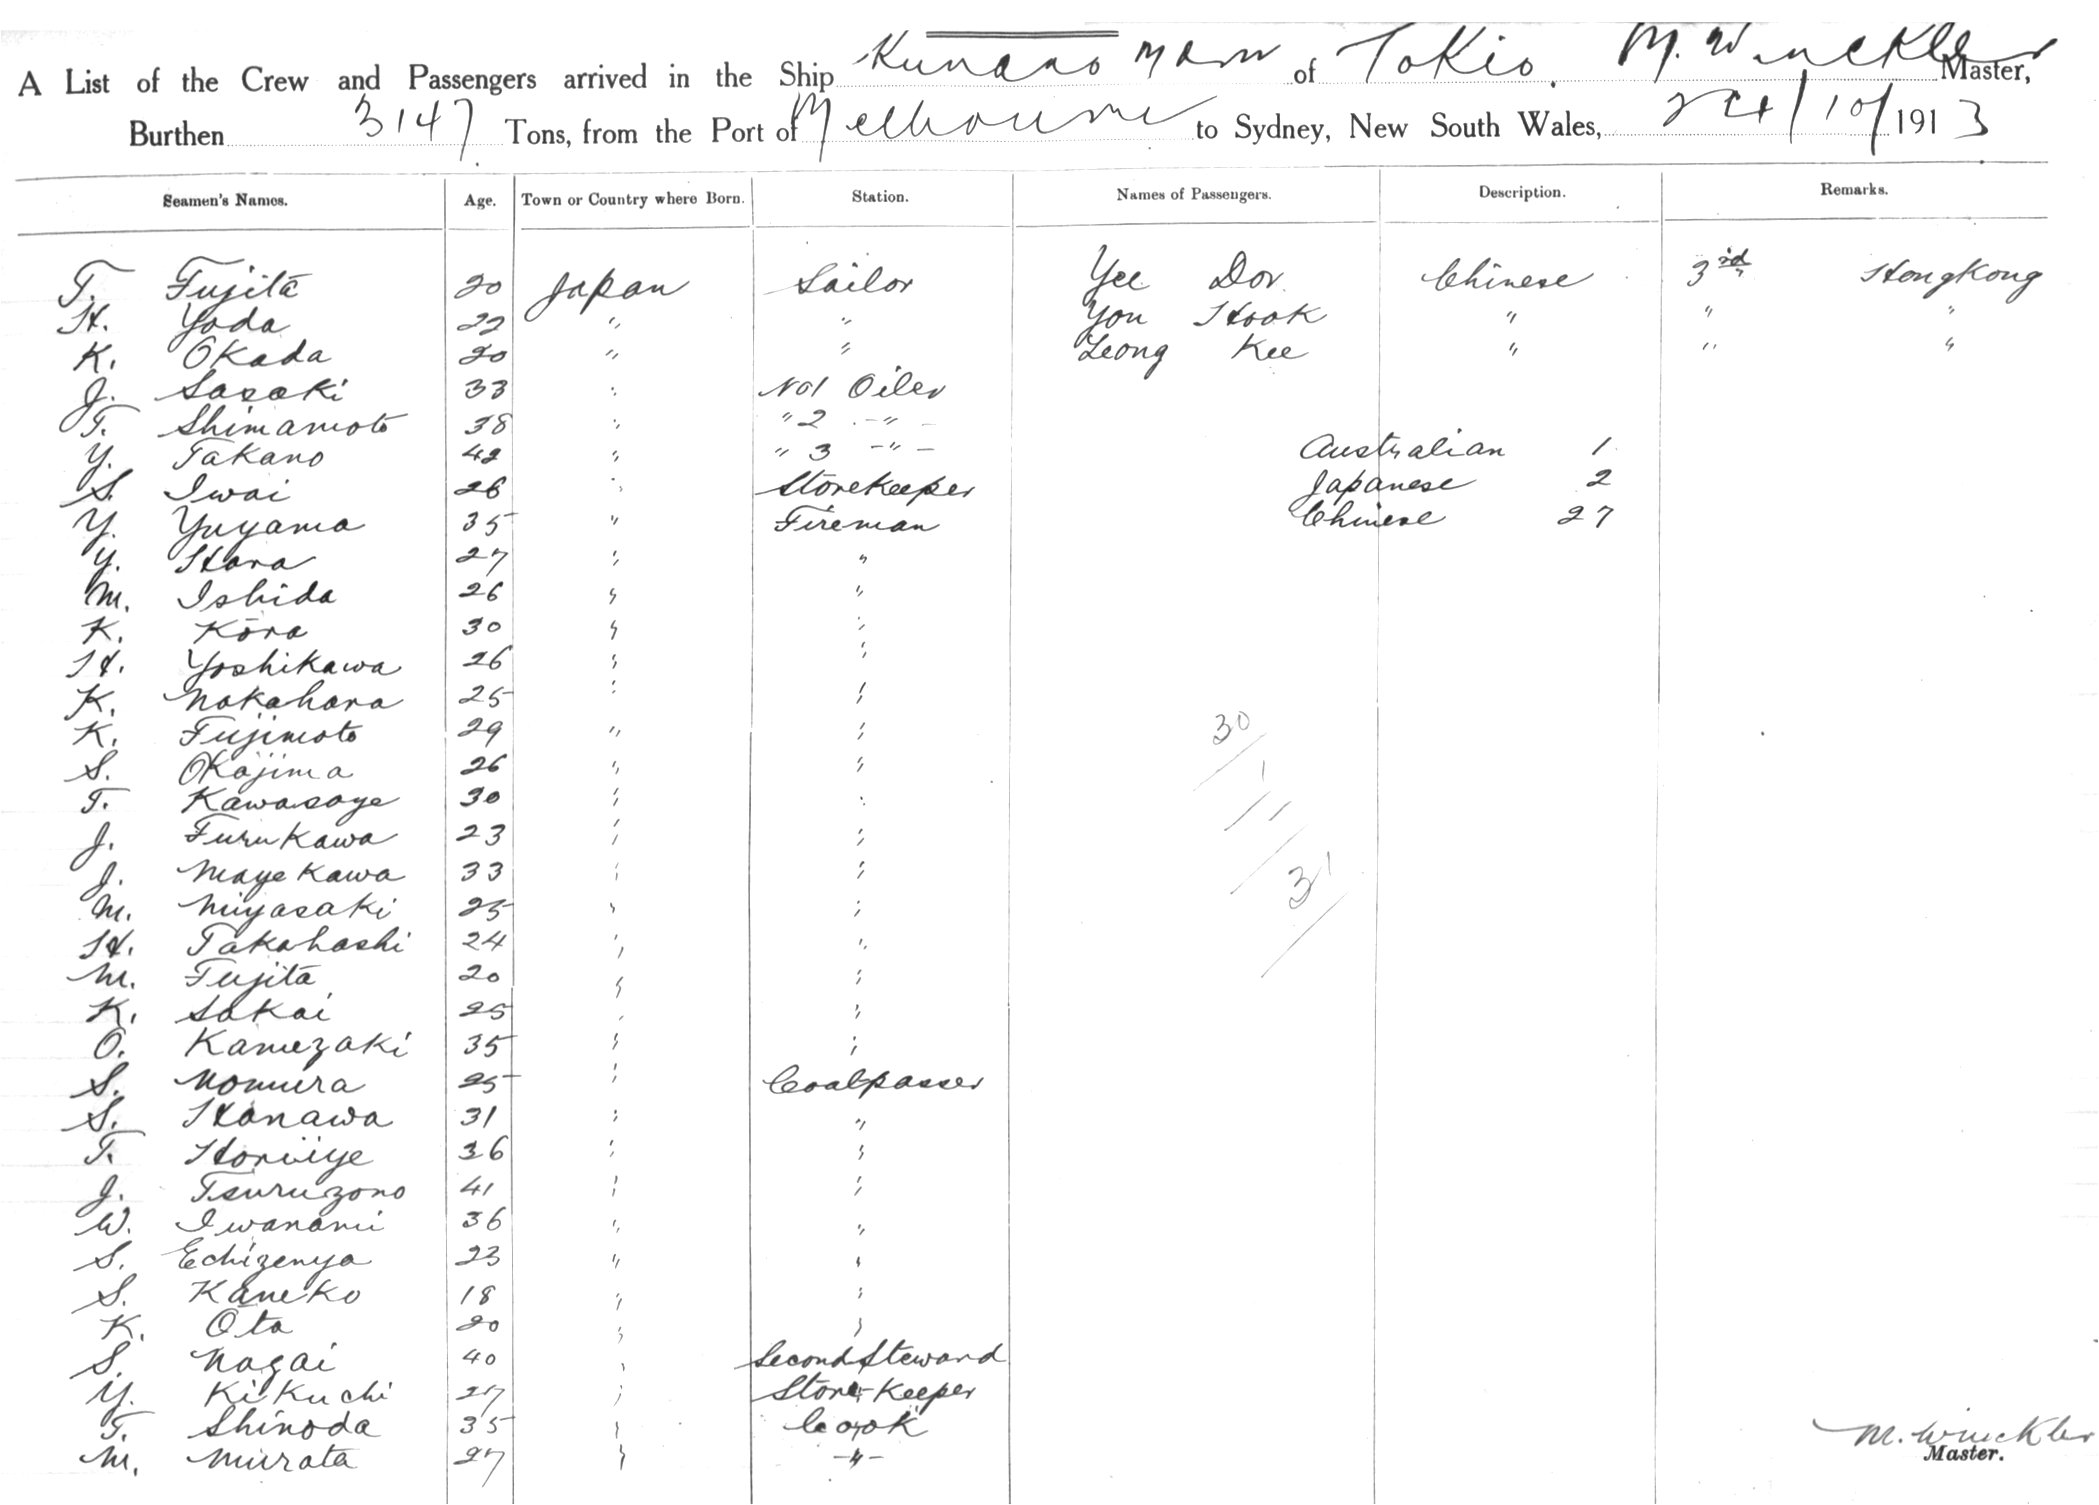 A List of the Crew and Passengers arrived in the Ship Kumano Maru of Tokio. M. Winckler Master,
Burthen 3147 Tons, from the Port of Melbourne to Sydney, New South Wales, 24/10/1913
Seamen's Names. Age. Town or Country where Born. Station. Names of Passengers. Description. Remarks.
T. Fujita 20 Japan Sailor Yee Dor Chinese 3rd HongKong
H. Yoda 22 " " You Hook " " "
K. Okada 20 " " Leong Kee " " "
J. Sasaki 33 " No1 Oiler
T. Shimamoto 38 " " 2 - " -
Y. Takano 42 " " 3 - " - Australian 1
S. Iwai 26 " Storekeeper Japanese 2
Y. Yuyama 35 " Fireman Chinese 27
Y. Hara 27 " "
M. Ishida 26 " "
K. Kōra 30 " "
H. Yoshikawa 26 " "
K. Nakahara 25 " "
K. Fujimoto 29 " " 30
S. Okajima 26 " " 1
T. Kawasoye 30 " "
J. Furukawa 23 " "
J. Mayekawa 33 " " 31
M. Miyasaki 25 " "
H. Takahashi 24 " "
M. Fujita 20 " "
K. Sakai 25 " "
O. Kamezaki 35 " "
S. Nomura 25 " Coalpasser
S. Hanawa 31 " "
T. Horiiye 36 " "
J. Tsuruzono 41 " "
W. Iwanami 36 " "
S. Echizenya 23 " "
S. Kaneko 18 " "
K. Ota 20 " "
S. Nagai 40 " Second Steward
Y. Kikuchi 27 " Store-Keeper
T. Shinoda 35 " Cook
M. Murata 27 " - " -
M. Winckler
Master.